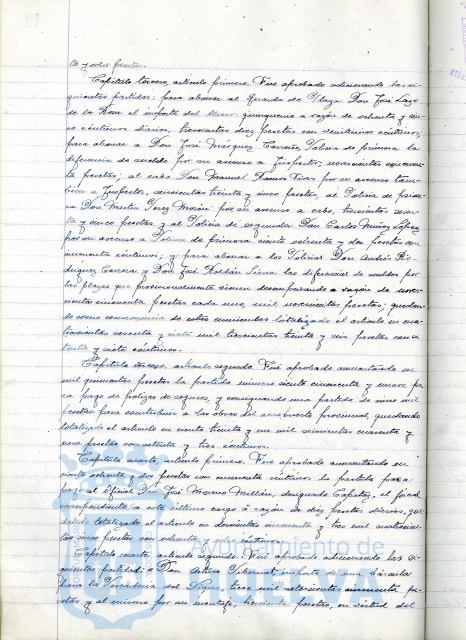 ta y ocho pesetas.
Capítulo tercero, artículo primero. Fué aprobado adicionando las si-
guientes partidas: para abonar al Guarda de Plaza Don José Lazo
de la Rosa el importe del tercer quinquenio a razón de ochenta y cin-
co céntimos diarios, trescientas diez pesetas con veinticinco céntimos;
para abonar a Don José Márquez Carrasco, Policía de primera la
diferencia de sueldo por su ascenso a Inspector, novecientas cincuen-
ta pesetas; al cabo Don Manuel Ramos Vivas por su ascenso tam-
bién a Inspector, seiscientas treinta y cinco pesetas, al Policía de prime-
ra Don Martín Pérez Morón por su ascenso a cabo, trescientas sesen-
ta y cinco pesetas y al Policía de segunda Don Carlos Muñoz López
por su ascenso a Policía de primera ciento ochenta y dos pesetas con
cincuenta céntimos; y para abonar a los Policías Don Andrés Ro-
dríguez Carrera y Don José Roldán Sierra las diferencias de sueldos por
las plazas que provisionalmente vienen desempeñando a razón de nove-
cientas cincuenta pesetas cada uno, mil novecientas pesetas; quedan-
do como consecuencia de estas enmiendas totalizado el artículo en cua-
trocientas sesenta y siete mil trescientas treinta y seis pesetas con
y siete céntimos.
Capítulo tercero, artículo segundo. Fué aprobado aumentando en
mil quinientas pesetas la partida número ciento cincuenta y nueve pa-
ra pago de pólizas de seguros, y consignando una partida de cinco mil
pesetas para contribuir a las obras del aeropuerto provincial, quedando
totalizado el artículo en ciento treinta y un mil seiscientas cuarenta y
una pesetas con setenta y tres céntimos.
Capítulo cuarto, artículo primero. Fué aprobado aumentando en
ciento ochenta y dos pesetas con cincuenta céntimos la partida para
pago al Oficial Don José Moreno Millán, designado Capataz, el jornal
correspondiente a este último cargo a razón de diez pesetas diarias, que-
dando totalizado el artículo en doscientas cincuenta y tres mil cuatrocien-
tas cinco pesetas con ochenta y céntimos.
Capítulo cuarto, artículo segundo. Fué aprobado adicionando las si-
guientes partidas: a Don Arturo importe de una báscula
para la Lonja, tres mil setecientas cincuenta pe-
setas y al mismo por su montaje, trescientas pesetas, en virtud del
Ayuntamiento de
HUELVA